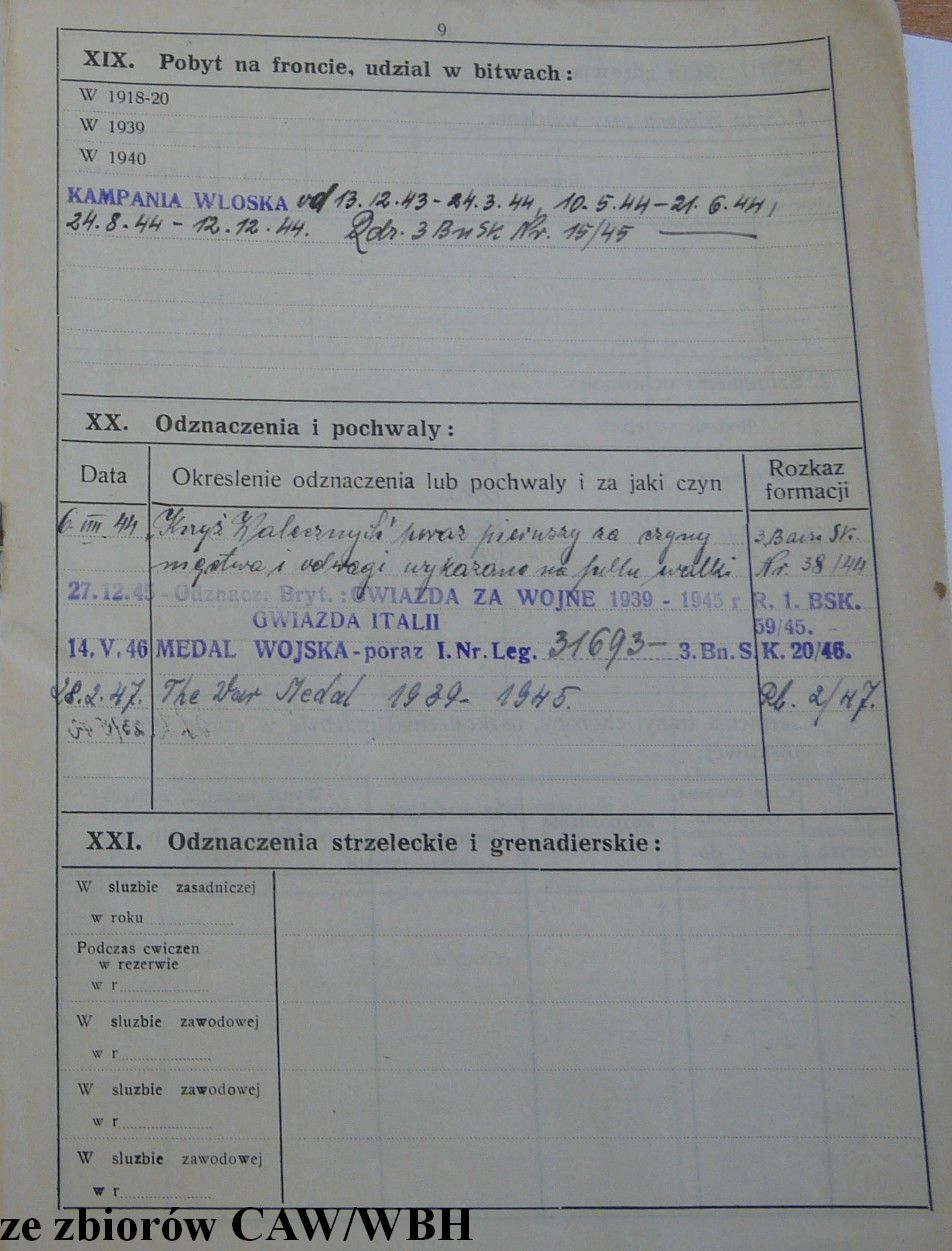 9
XIX. Pobyt na froncie, udzial w bitwach:
W 1918-20
W 1939
W 1940
KAMPANIA WLOSKA od 13.12.43 - 24.3.44, 10.5.44 - 21.6.44,
24.8.44 - 12.12.44. Rdz. 3 BnSk Nr. 15/45
XX. Odznaczenia i pochwaly:
Data Okreslenie odznaczenia lub pochwaly i za jaki czyn Rozkaz formacji
6 VIII 44 "Krzyż Walecznych" poraz pierwszy za czyny 3 Baonu SK.
męstwa i odwagi wykazane na polu walki Nr. 38/44
27.12.45 - Odznacz. Bryt.: GWIAZDA ZA WOJNE 1939 - 1945 r R. 1. BSK.
GWIAZDA ITALII 59/45. -
14.V.46 MEDAL WOJSKA - poraz I. Nr. Leg. 31693 - 3. Bn. S.K. 20/46.
28.2.47. The War Medal 1939 - 1945. Rb. 2/47.
XXI. Odznaczenia strzeleckie i grenadierskie:
W sluzbie zasadniczej
w roku
Podczas cwiczen
w rezerwie
w r
W sluzbie zawodowej
w r
W sluzbie zawodowej
w r
W sluzbie zawodowej
w r
ze zbiorów CAW/WBH